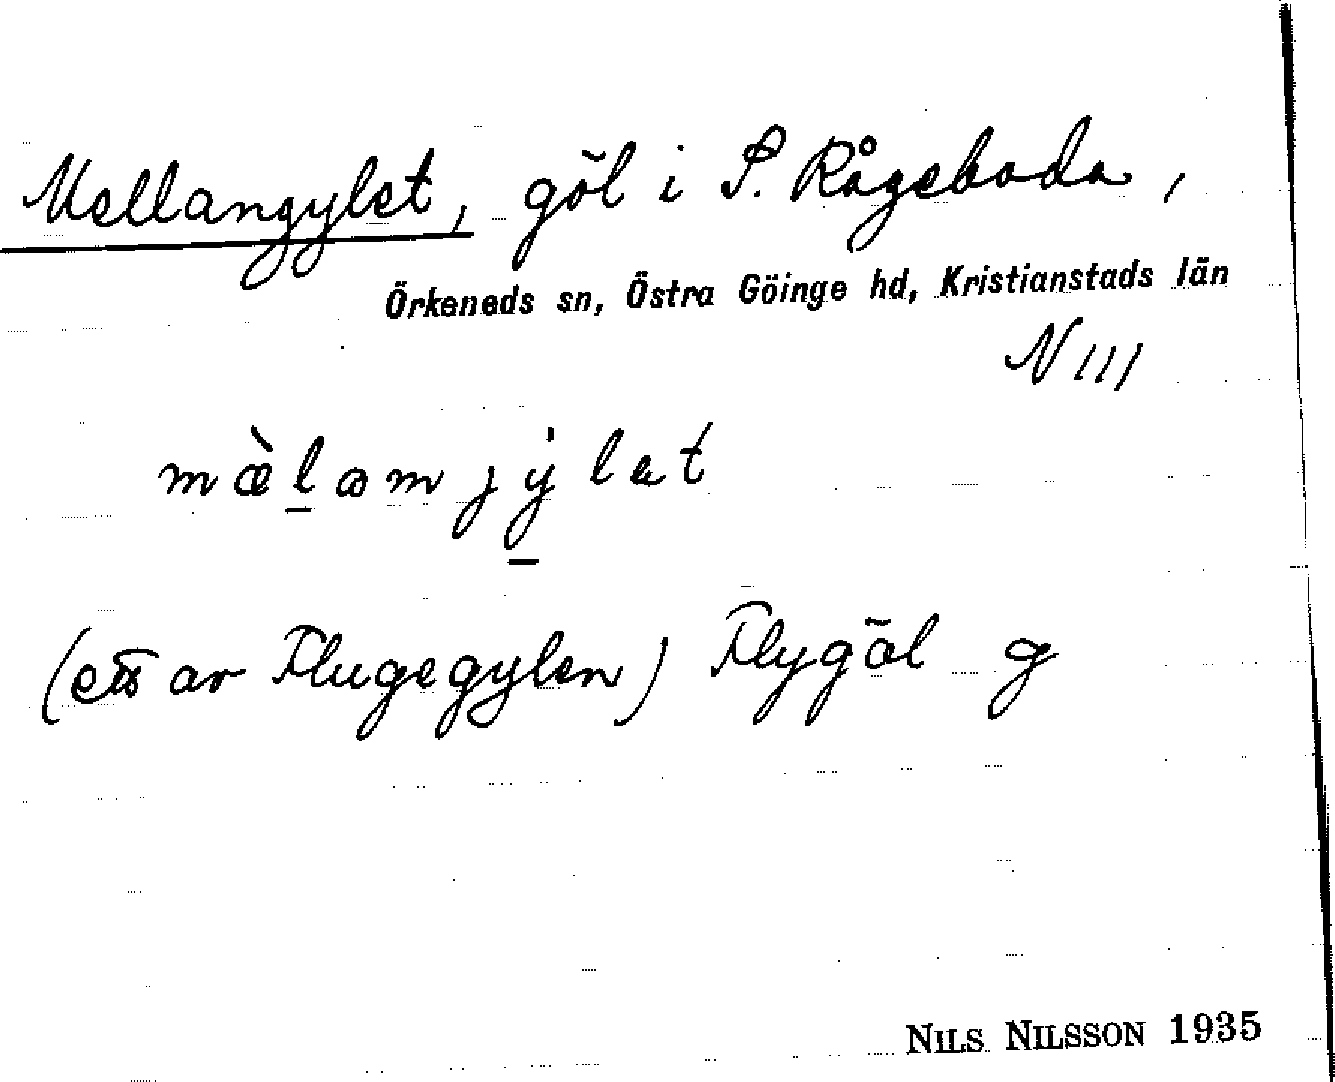 Mellangylet, göl i S. Rågeboda,
Örkeneds sn, Östra Göinge hd, Kristianstads län
N III
mæ̀l̲amjẏ̲lət
(ett av Flugegylen) Flygöl g
NILS NILSSON 1935